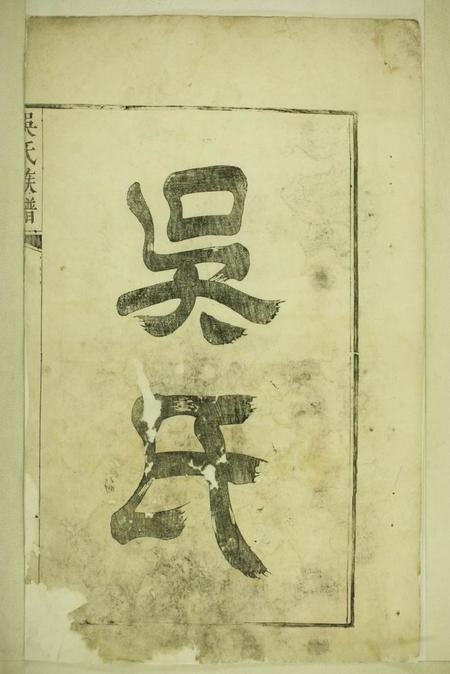 吳氏
吳氏族譜